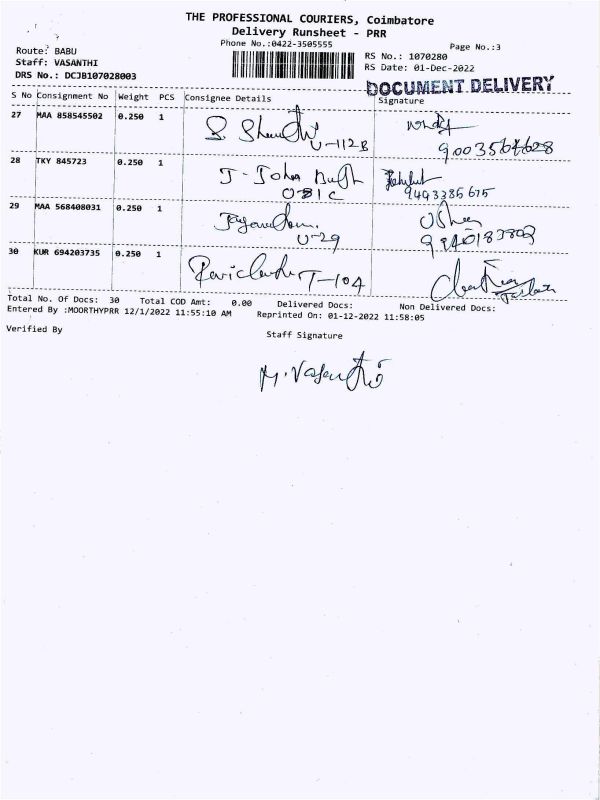 THE PROFESSIONAL COURIERS, Coimbatore
Delivery Runsheet - PRR
Phone No.:0422-3505555
Page No.:3
Route: BABU
Staff: VASANTHI
DRS No.: DCJB107028003
RS No.: 1070280
RS Date: 01-Dec-2022
DOCUMENT DELIVERY
S No Consignment No Weight PCS Consignee Details Signature
27 MAA 858545502 0.250 1 S. U-112B
9003564628
28 TKY 845723 0.250 1 J- John
9493385675
29 MAA 568408031 0.250 1
U-29
Usha
30 KUR 694203735 0.250 1 T-104
Total No. Of Docs: 30 Total COD Amt: 0.00 Delivered Docs: Non Delivered Docs:
Entered By :MOORTHYPRR 12/1/2022 11:55:10 AM Reprinted On: 01-12-2022 11:58:05
Verified By
Staff Signature
M. Vasanthi